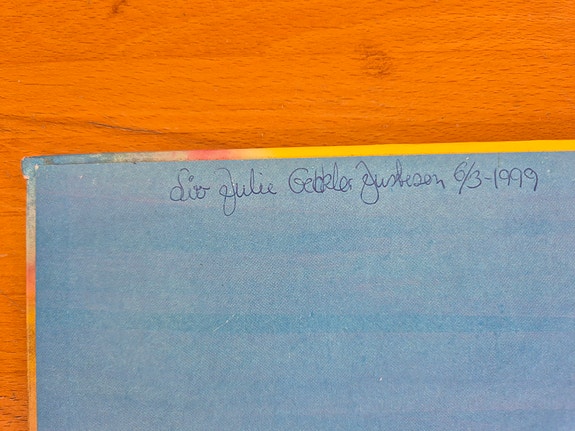 Liv Julie Justesen 6/3-1999